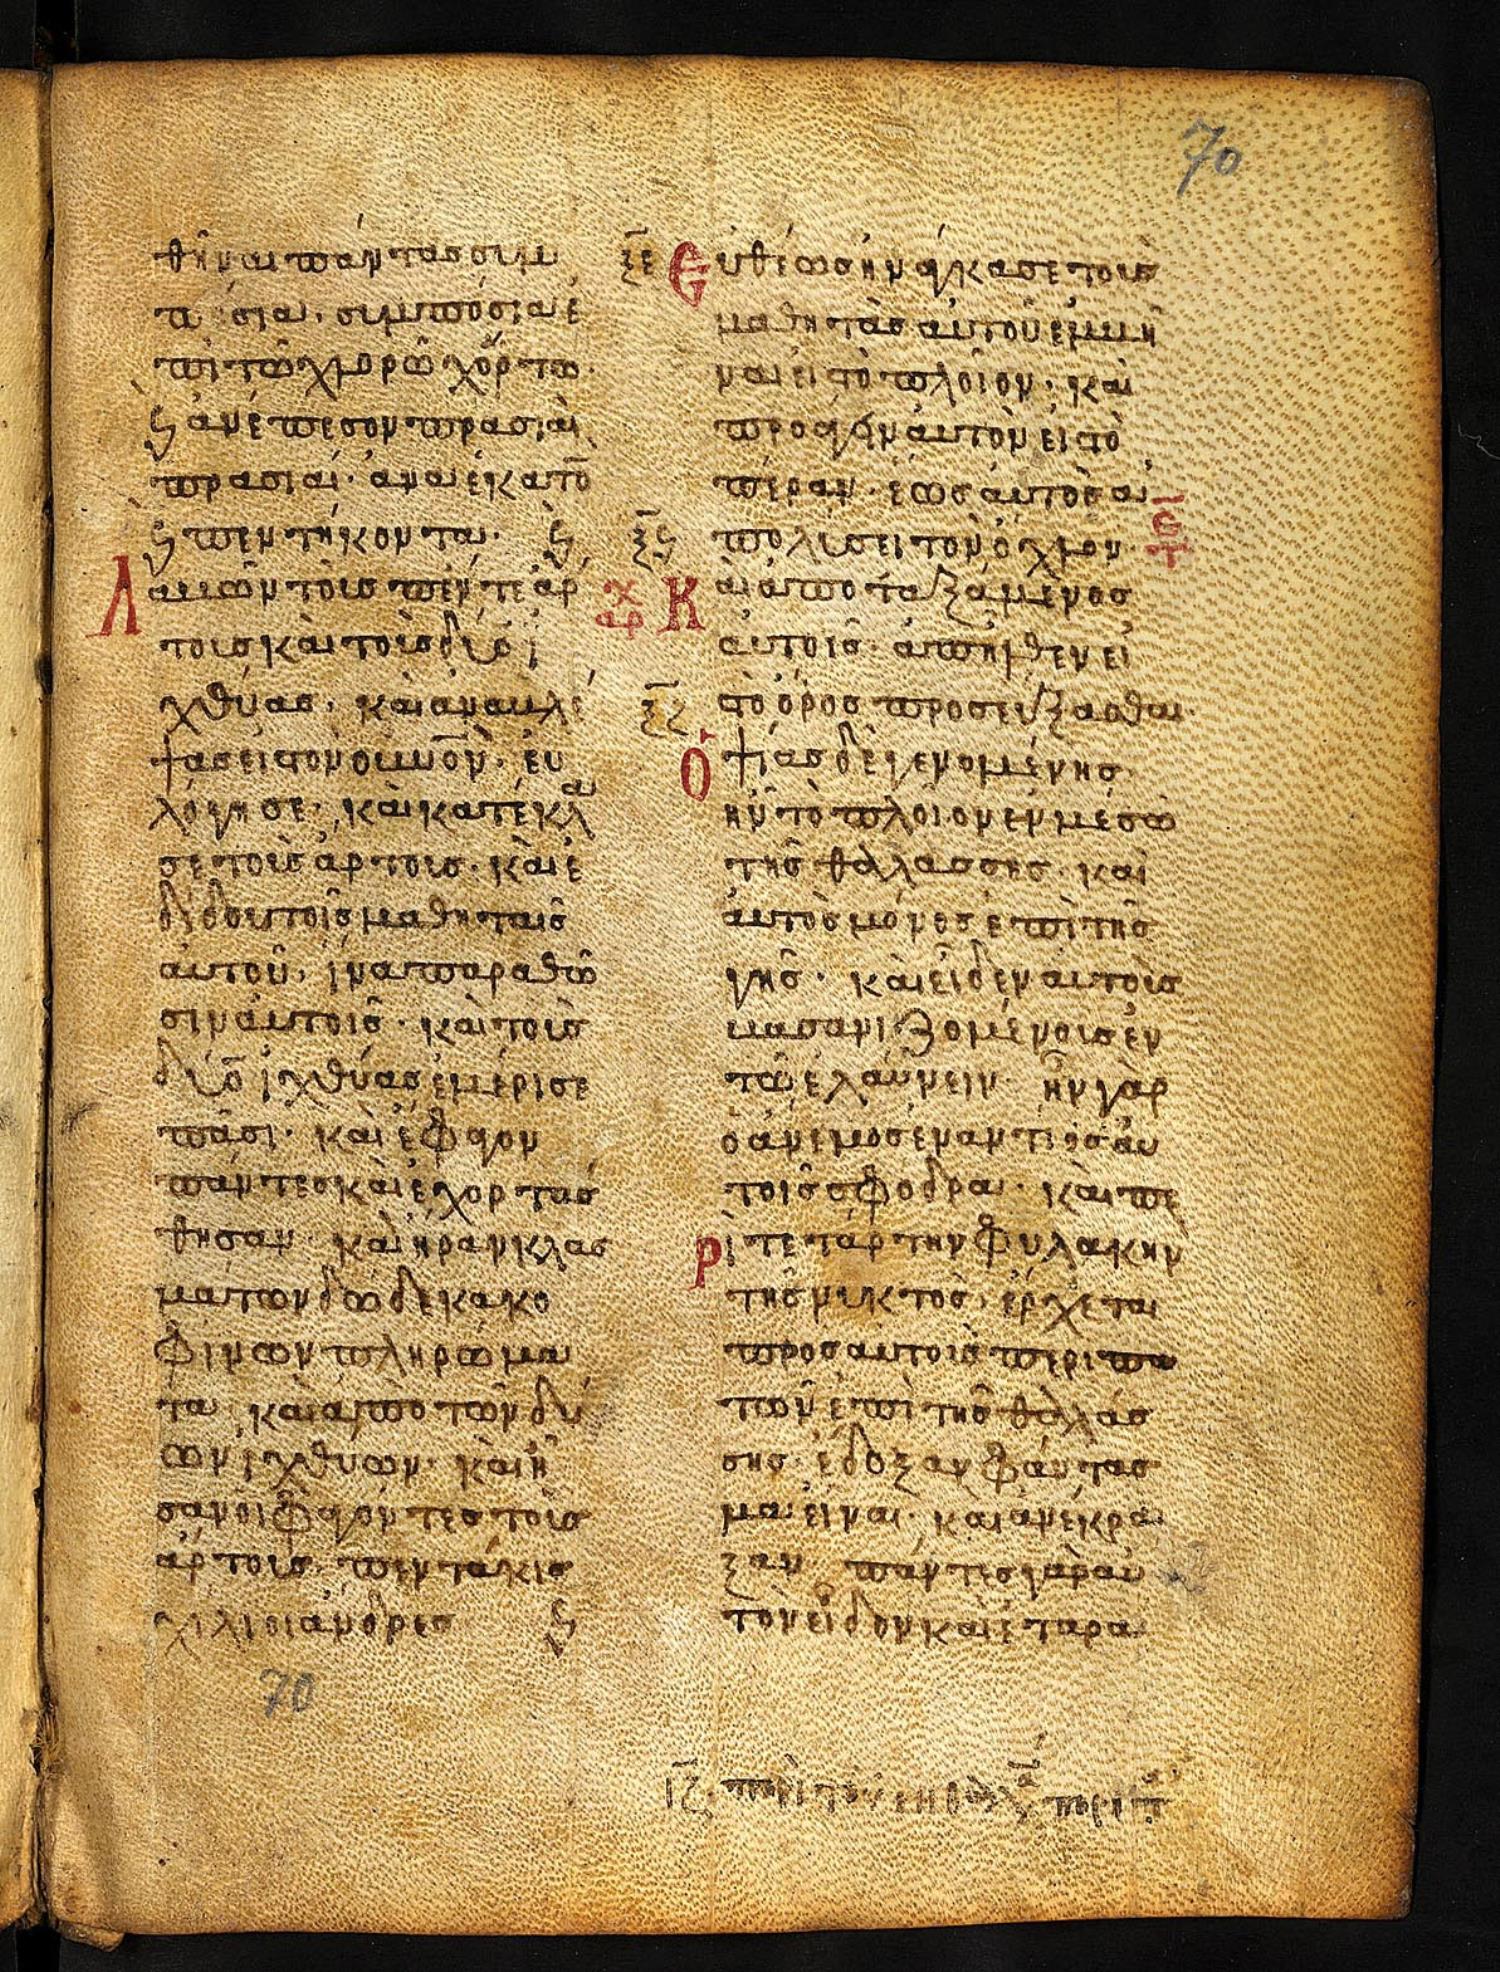 70
θῆναι πάντας συμ
πόσια· συμπόσια ἐ
πὶ τῶ χλορῶ χόρτω·
ϗ ἀνέπεσον πρασιαὶ
πρασιαί· ἀνα ἑκατο̄
ϗ πεντήκοντα· ϗ
Λαβῶν τοὺς πέντε ἄρ
τους καὶ τοὺς δύο ἰ
χθύας· καὶ ἀναβλέ
ψας εἰς τὸν οὐν̅ο̅ν̅· εὐ
λόγησε· καὶ κατέκλα
σε τοὺς ἄρτους· καὶ ἐ
δίδου τοῖς μαθηταῖς
αὐτοῦ, ἵνα παραθῶ
σιν αὐτοῖς· καὶ τοὺς
δύο ἰχθύας ἐμέρισε
πᾶσι· καὶ ἔφαγον
πάντες καὶ ἐχορτάσ
θησαν· καὶ ἦραν κλασ
μάτων δώδεκα κο
φίνων πληρώμα
τα καὶ ἀπὸ τῶν δύ
ων ἰχθύων· καὶ ἦ
σαν οἱ φαγόντες τοὺς
ἄρτους· πεντάκισ
χιλιοι ἄνδρες ϗ
70
ξε Εὐθέως ἠνάγκασε τοὺς
μαθητὰς αὐτοῦ ἐμβῆ
ναι εἰς τὸ πλοῖον· καὶ
προάγειν αὐτὸν εἰς τὸ
πέραν· ἕως αὐτὸς ἀ
ξϛ πολύσει τὸν ὄχλον· τε
αρχ Καὶ ἀποταξάμενος
αὐτοῖς· ἀπῆλθεν εἰς
ξζ τὸ ὄρος προσεύξασθαι·
Ὀψίας δὲ γενομένης·
ἦν τὸ πλοῖον ἐν μέσω
τῆς θαλάσσης· καὶ
αὐτὸς μόνος ἐπὶ τῆς
γῆς· καὶ εἶδεν αὐτοὺς
βασανιζομένους ἐν
τῶ ἐλαύνειν ἦν γὰρ
ὁ ἄνεμος ἐναντίος αὐ
τοῖς σφόδρα· καὶ πε
Ρὶ τετάρτην φυλακὴν
τῆς νυκτὸς· ἔρχεται
προς αὐτοὺς περιπα
τῶν ἐπὶ τῆς θαλάσ
σης· ἔδοξαν φάντασ
μα εἶναι· καὶ ἀνέκρα
ξαν πάντες γὰρ αὐ
τὸν εἶδον καὶ ἐταρα
ιζ περὶ τοῦ ἐν θαλ περιπ